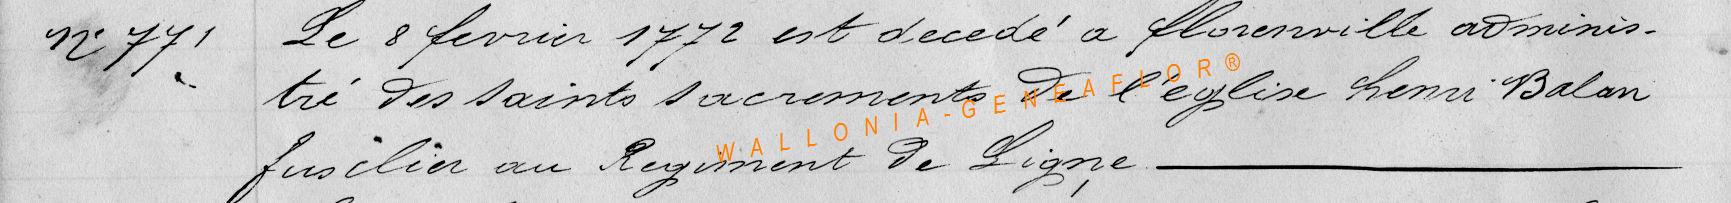 N° 771
Le 8 fevrier 1772 est decedé a florenville adminis-
tré des saints sacrements de l'église henri Balan
fusilier au Regiment de Ligne
WALLONIA-GENEAFLOR®